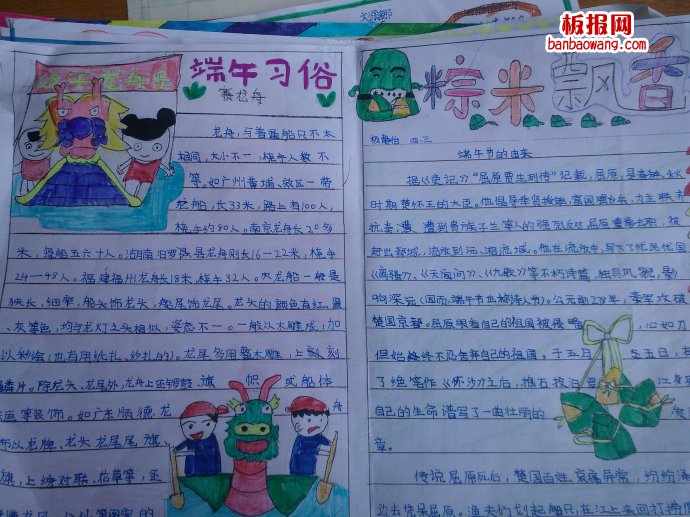 板报网
banbaowang.com
端午习俗
赛龙舟
龙舟,与普通船只不太
相同,大小不一,桡手人数不
等。如广州黄埔、郊区一带
龙船,长33米,路上有100人,
桡手约80人。南京龙舟长20多
米,每船五六十人。湖南汨罗县龙舟则长16—22米,桡手
24—48人。福建福州龙舟长18米,桡手32人。龙船一般是
狭长、细窄,船头饰龙头,船尾饰龙尾。龙头的颜色有红、黑
、灰等色,均与龙灯之头相似,姿态不一。一般以木雕成,加
以彩绘(也有用纸扎、纱扎的)。龙尾多用整木雕,上刻
鳞片。除龙头、龙尾外,龙舟上还有锣鼓、旗帜或船体
画等装饰。如广东顺德龙舟
饰以龙牌、龙头龙尾旗、
旗,上绣对联、花草等,还
粽米飘香
四、三
端午节的由来
据《史记》“屈原贾生列传”记载,屈原,是春秋
时期楚怀王的大臣。他倡导举贤授能,富国强兵,力主联齐
抗秦,遭到贵族子兰等人的强烈反对,屈原遭馋去职,被
赶出都城,流放到沅、湘流域。他在流放中,写下了忧民忧国
《离骚》、《天问》、《九歌》等不朽诗篇,独具风貌,影
响深远(因而,端午节也称诗人节)。公元前278年,秦军攻破
楚国京都。屈原眼看自己的祖国被侵略,心如刀
但始终不忍舍弃自己的祖国,于五月五日,在
了绝笔作《怀沙》之后,抱石投汨江身死
自己的生命谱写了一曲壮丽的爱
章。
传说屈原死后,楚国百姓哀痛异常,纷纷涌
边去凭吊屈原。渔夫们划起船只,在江上来回打捞